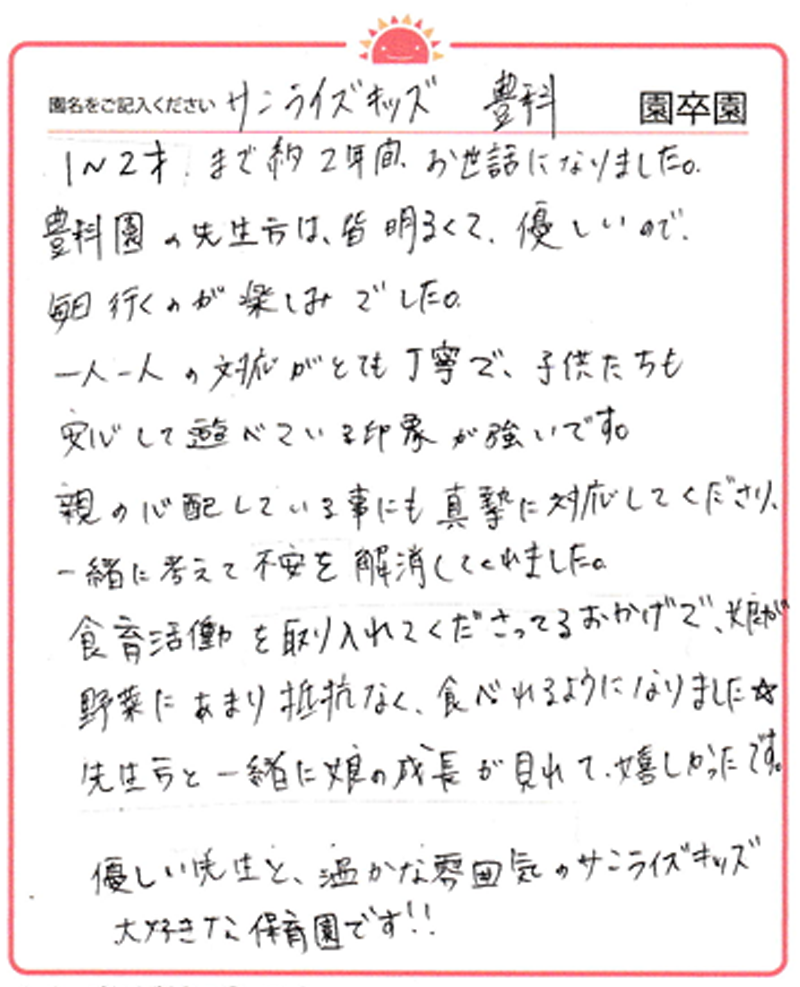 園名をご記入ください サンライズキッズ 豊科 園卒園
1〜2才まで約2年間、お世話になりました。
豊科園の先生方は、皆明るくて、優しいので、
毎日行くのが楽しみでした。
一人一人の対応がとても丁寧で、子供たちも
安心して遊べている印象が強いです。
親の心配している事にも真摯に対応してくださり、
一緒に考えて不安を解消してくれました。
食育活動を取り入れてくださってるおかげで、娘が
野菜にあまり抵抗なく、食べれるようになりました☆
先生方と一緒に娘の成長が見れて、嬉しかったです。
優しい先生と、温かな雰囲気のサンライズキッズ
大好きな保育園です!!